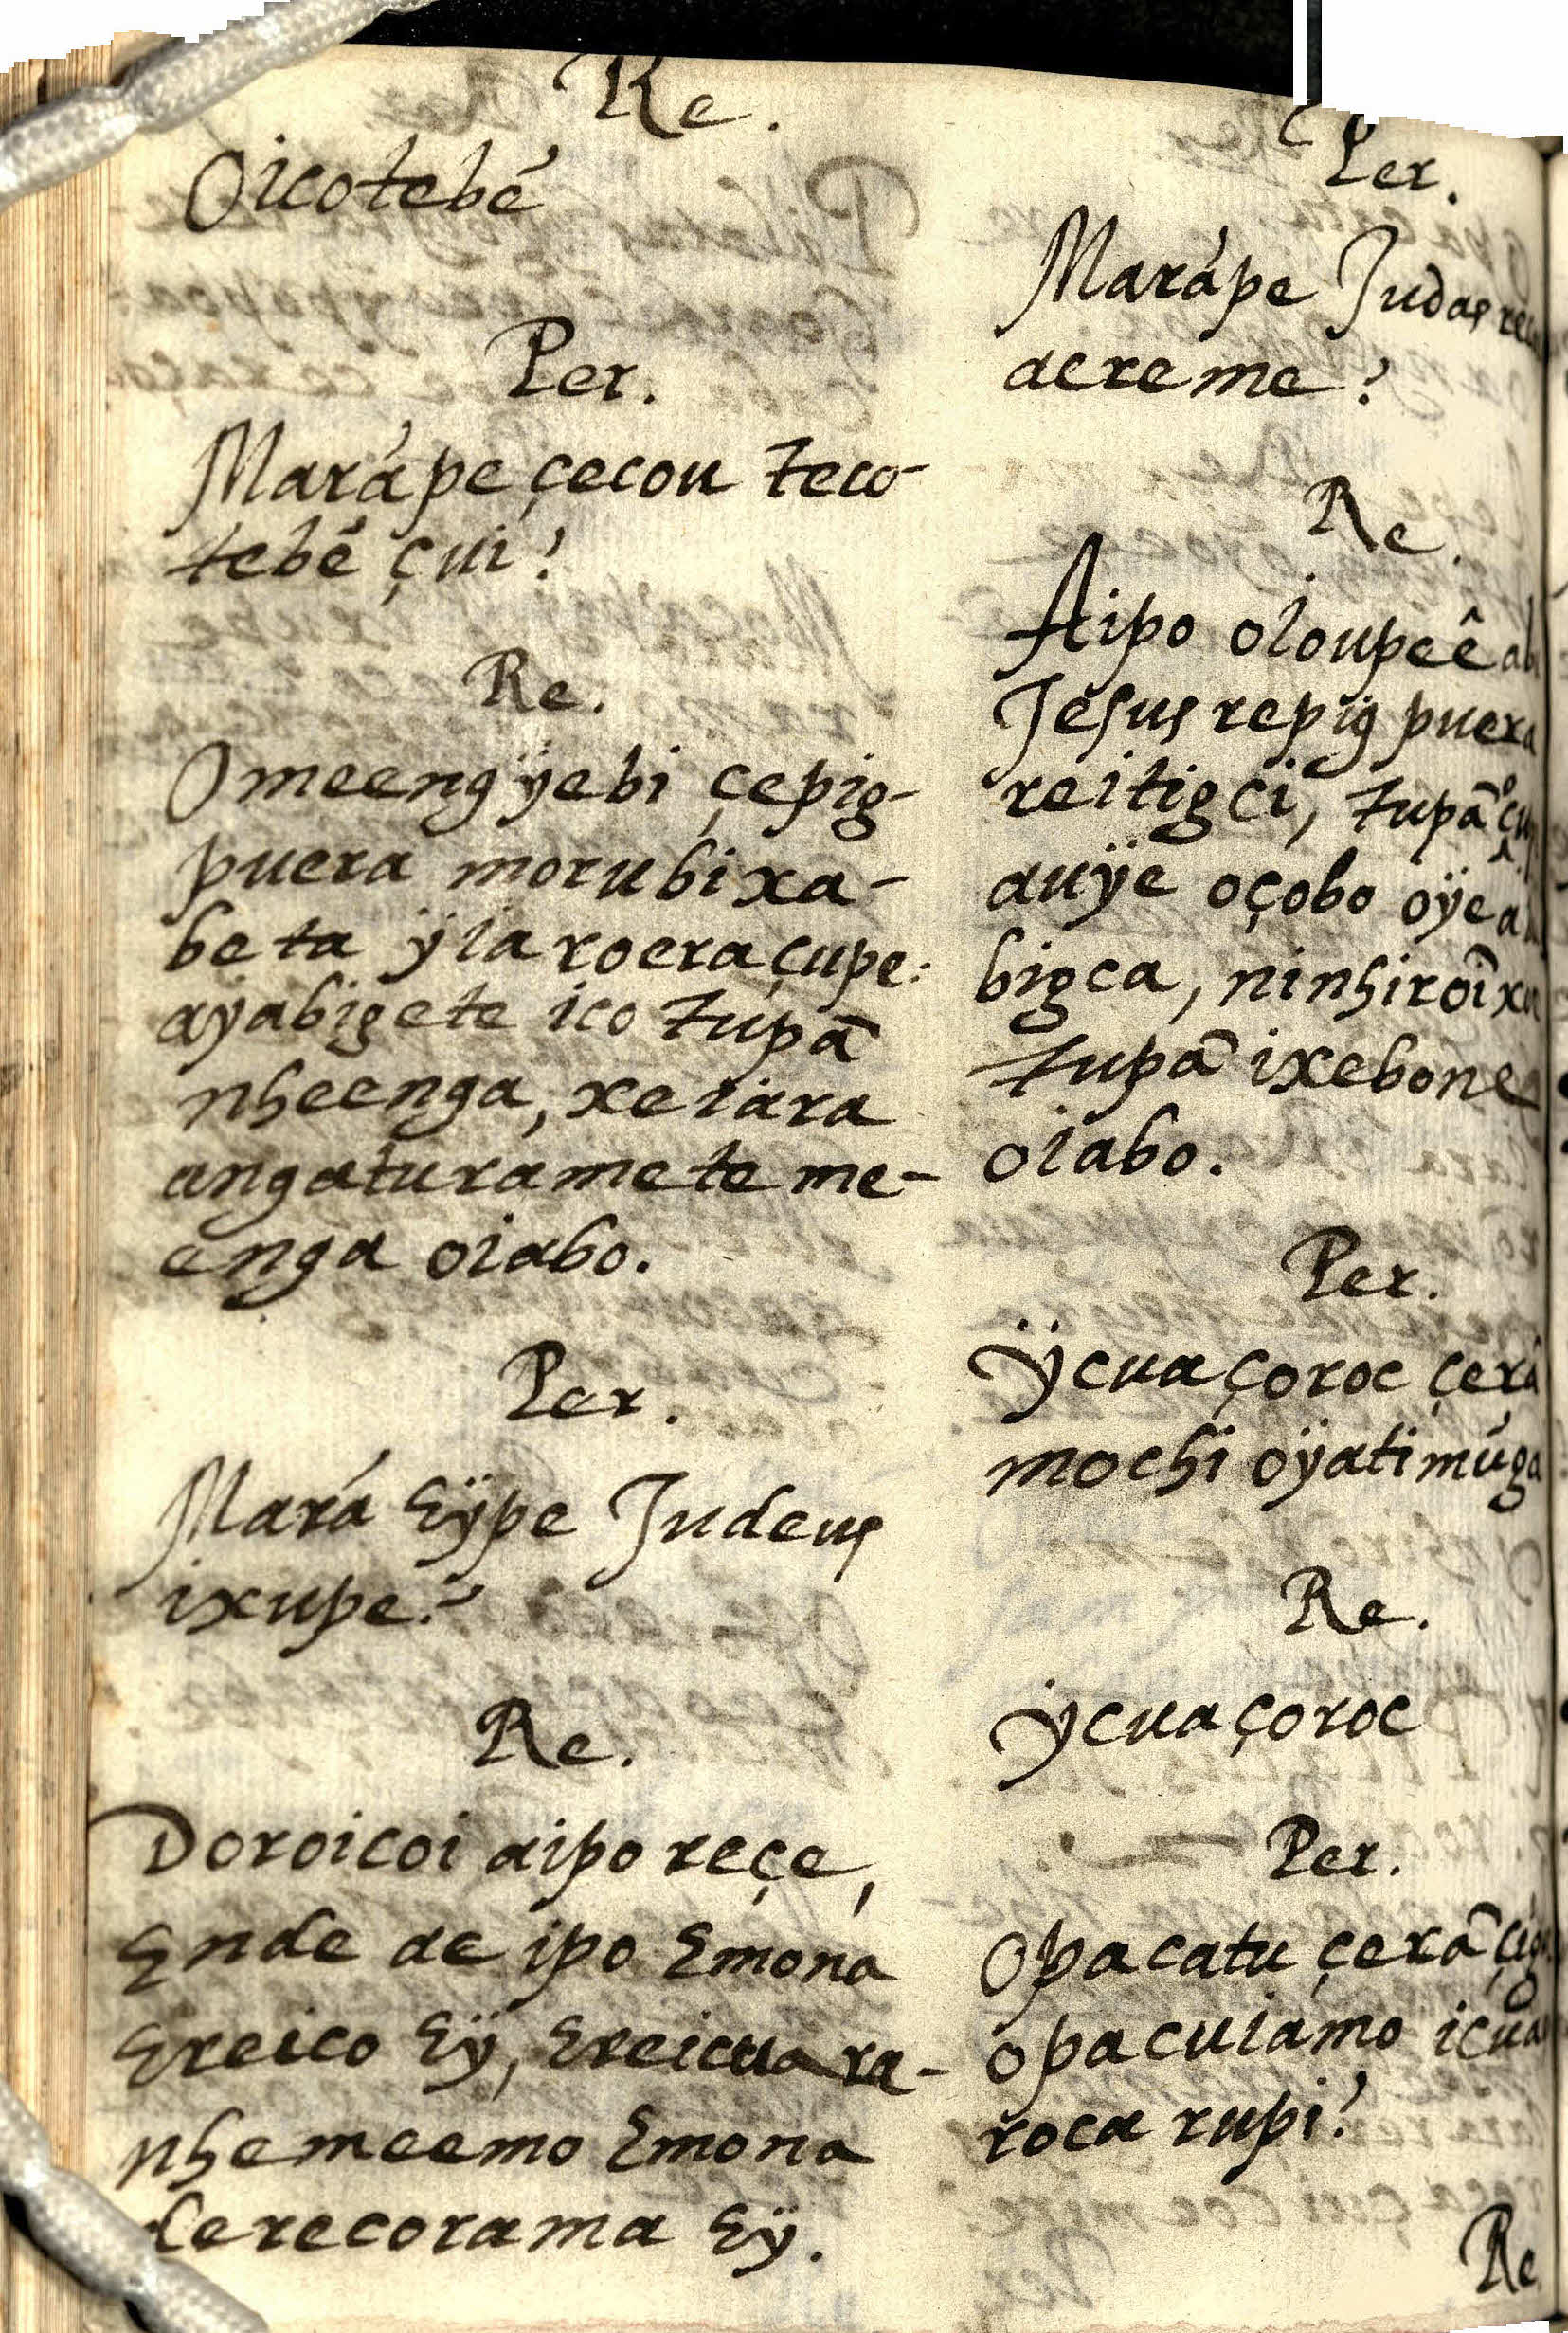 Re.
Oicotebé
Per.
Marápe çecou teco-
tebé çui?
Re.
Omeengÿebi çepig-
puera morubixa-
beta ÿiaroera çupe:
aÿabigete ico tupã
nheenga, xeiara
angaturamete me-
enga oiabo.
Per.
Mará Eÿpe Judeus
ixupe?
Re.
Doroicoi aipo reçe,
Ende ae ipo Emona
Ereico Eÿ, Ereicuara-
nhemeemo Emona
derecorama Eÿ.
Per.
Marápe Judas
aereme?
Re.
Aipo oioupeê
Jesus repÿg puera
reitigci, tupã
auÿe oçobo
bigca,
tupã ixebone
oiabo.
Per.
Ÿcuaçoroc çerã
mochi oÿatimúga
Re.
Ÿcuaçoroc
Per.
Opacatu çerã
opacuiamo
roca rupi?
Re